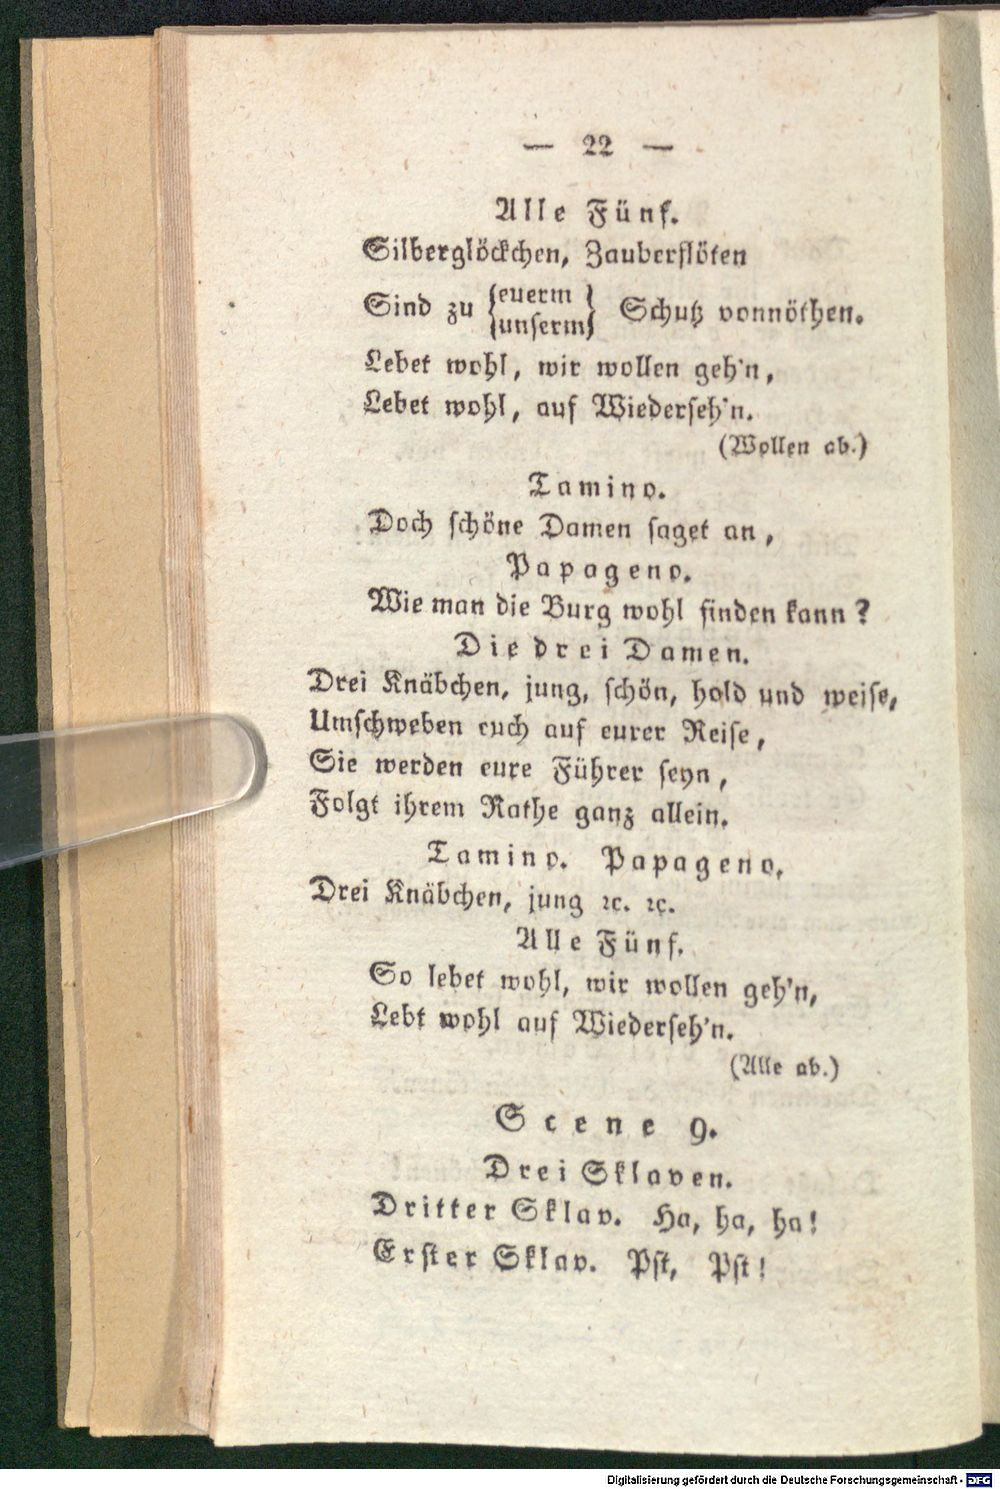 — 22 —
Alle Fünf.
Silberglöckchen, Zauberflöten
Sind zu {euerm / unserm} Schutz vonnöthen.
Lebet wohl, wir wollen geh'n,
Lebet wohl, auf Wiederseh'n.
(Wollen ab.)
Tamino.
Doch schöne Damen saget an,
Papageno.
Wie man die Burg wohl finden kann?
Die drei Damen.
Drei Knäbchen, jung, schön, hold und weise,
Umschweben euch auf eurer Reise,
Sie werden eure Führer seyn,
Folgt ihrem Rathe ganz allein.
Tamino. Papageno.
Drei Knäbchen, jung ꝛc. ꝛc.
Alle Fünf.
So lebet wohl, wir wollen geh'n,
Lebt wohl auf Wiederseh'n.
(Alle ab.)
Scene 9.
Drei Sklaven.
Dritter Sklav. Ha, ha, ha!
Erster Sklav. Pst, Pst!
Digitalisierung gefördert durch die Deutsche Forschungsgemeinschaft - DFG